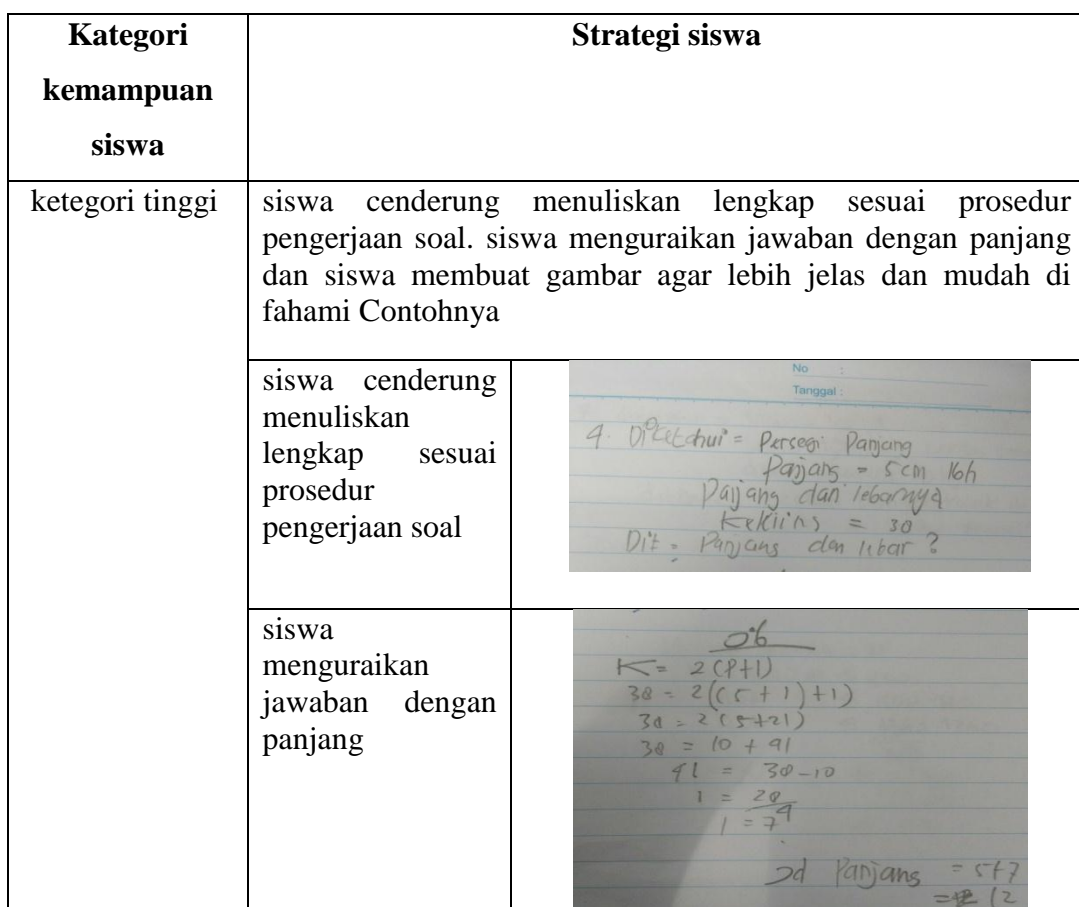 Kategori
kemampuan
siswa
Strategi siswa
ketegori tinggi
siswa cenderung menuliskan lengkap sesuai prosedur
pengerjaan soal. siswa menguraikan jawaban dengan panjang
dan siswa membuat gambar agar lebih jelas dan mudah di
fahami Contohnya
siswa cenderung
menuliskan
lengkap sesuai
prosedur
pengerjaan soal
No :
Tanggal :
4. Diketahui = Persegi Panjang
Panjang = 5 cm lbh
Panjang dari lebarnya
Keliling = 38
Dit = Panjang dan lebar ?
siswa
menguraikan
jawaban dengan
panjang
K = 2 (P+l)
38 = 2((5+l)+l)
38 = 2(5+2l)
38 = 10 + 4l
4l = 38-10
l = 28/4
l = 7
Jd Panjang = 5+7
= 12